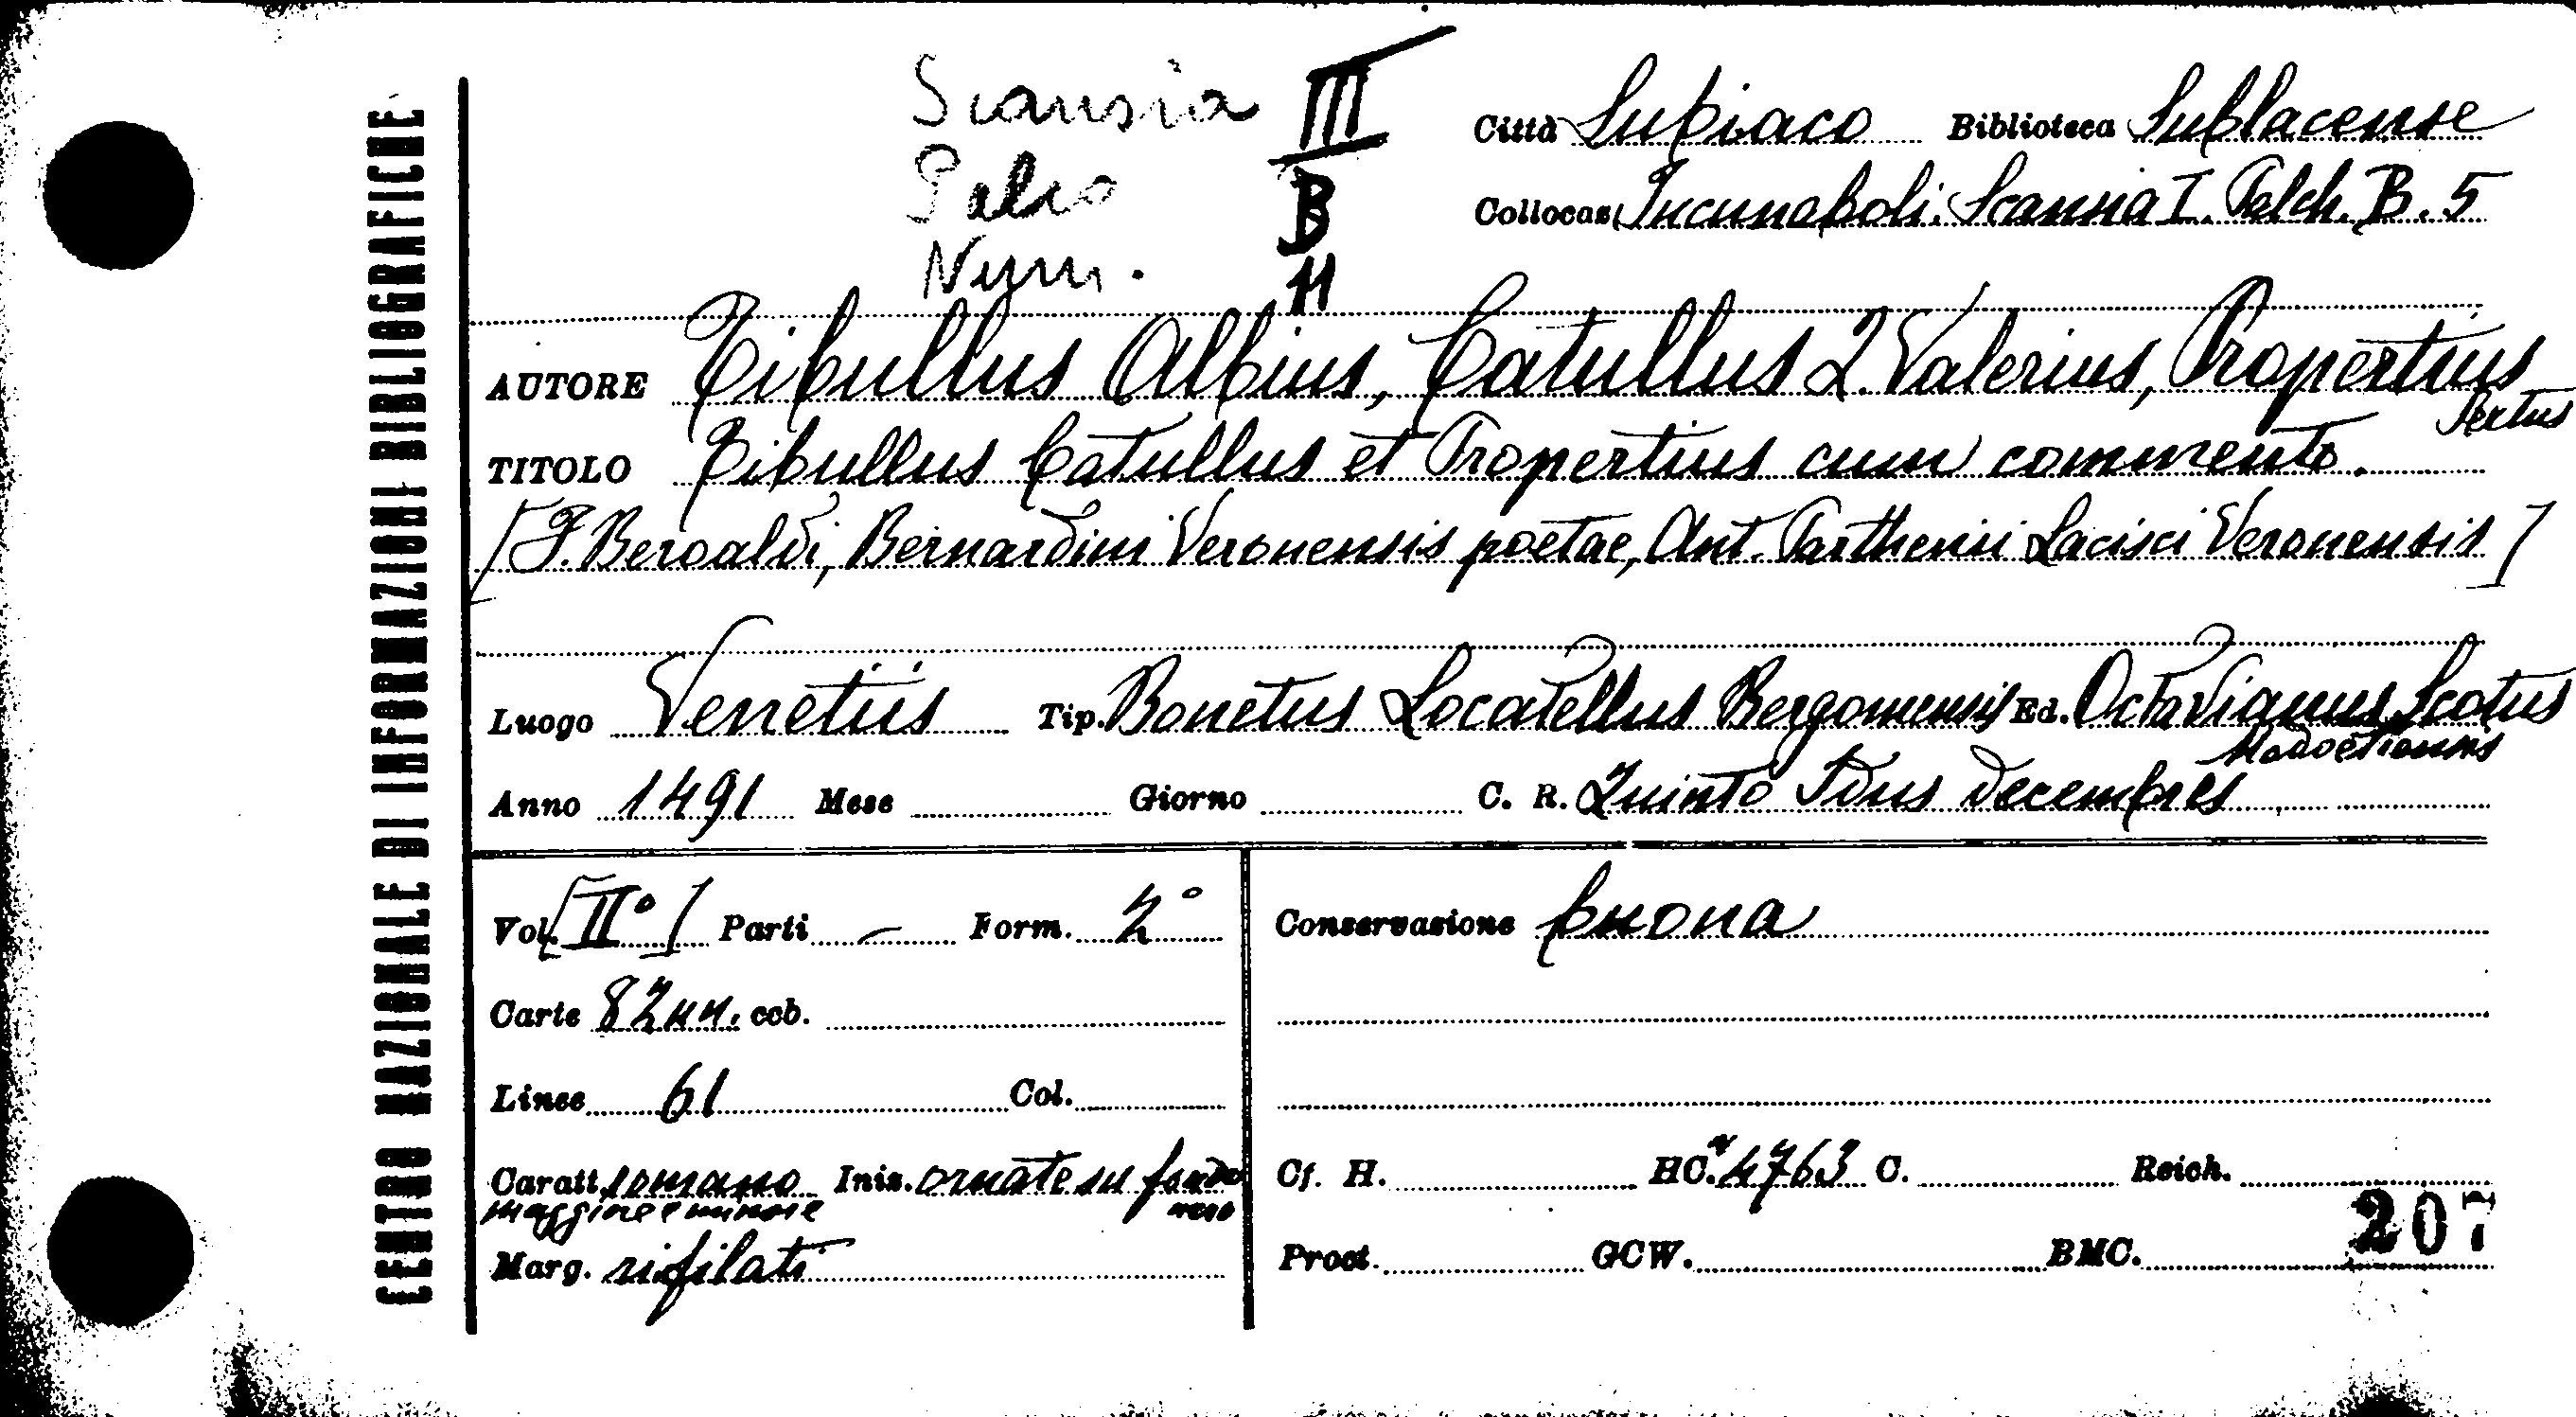 CENTRO NAZIONALE DI INFORMAZIONI BIBLIOGRAFICHE
Scansia III
Palco B
Num. 11
Città Subiaco Biblioteca Sublacense
Collocaz. Incunaboli. Scansia I. Palch. B. 5
AUTORE Tibullus Albius, Catullus Q. Valerius, Propertius
Sextus
TITOLO Tibullus Catullus et Propertius cum commento.
[F. Beroaldi, Bernardini Veronensis poetae, Ant. Parthenii Lacisci Veronensis]
Luogo Venetiis Tip. Bonetus Locatellus Bergomensis Ed. Octavianus Scotus
Modoetiensis
Anno 1491 Mese Giorno C. R. Quinto Idus decembres
Vol. [II°] Parti — Form. 2°
Conservazione buona
Carte 82 nn. ccb.
Linee 61 Col.
Caratt. romano Iniz. ornate su fondo
maggiore e minore nero
Cf. H. HC. 4763 C. Reich.
Marg. rifilati
Proct. GCW. BMC. 207